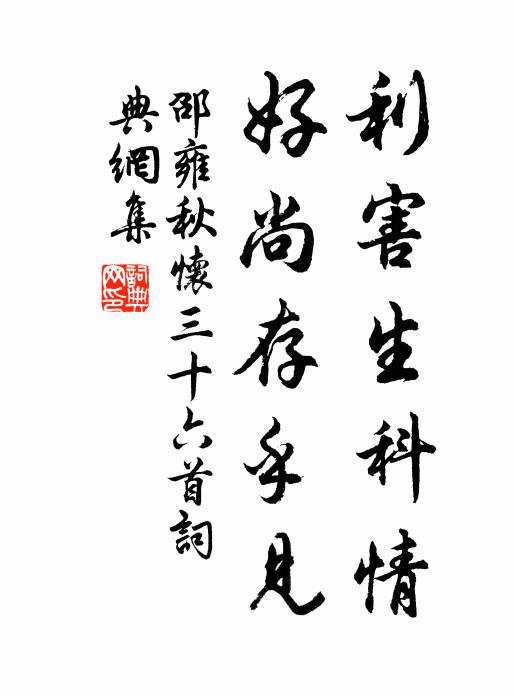 利害生科情
好尚存乎見
邵雍秋懷三十六首詞
典網集
詞典
网印